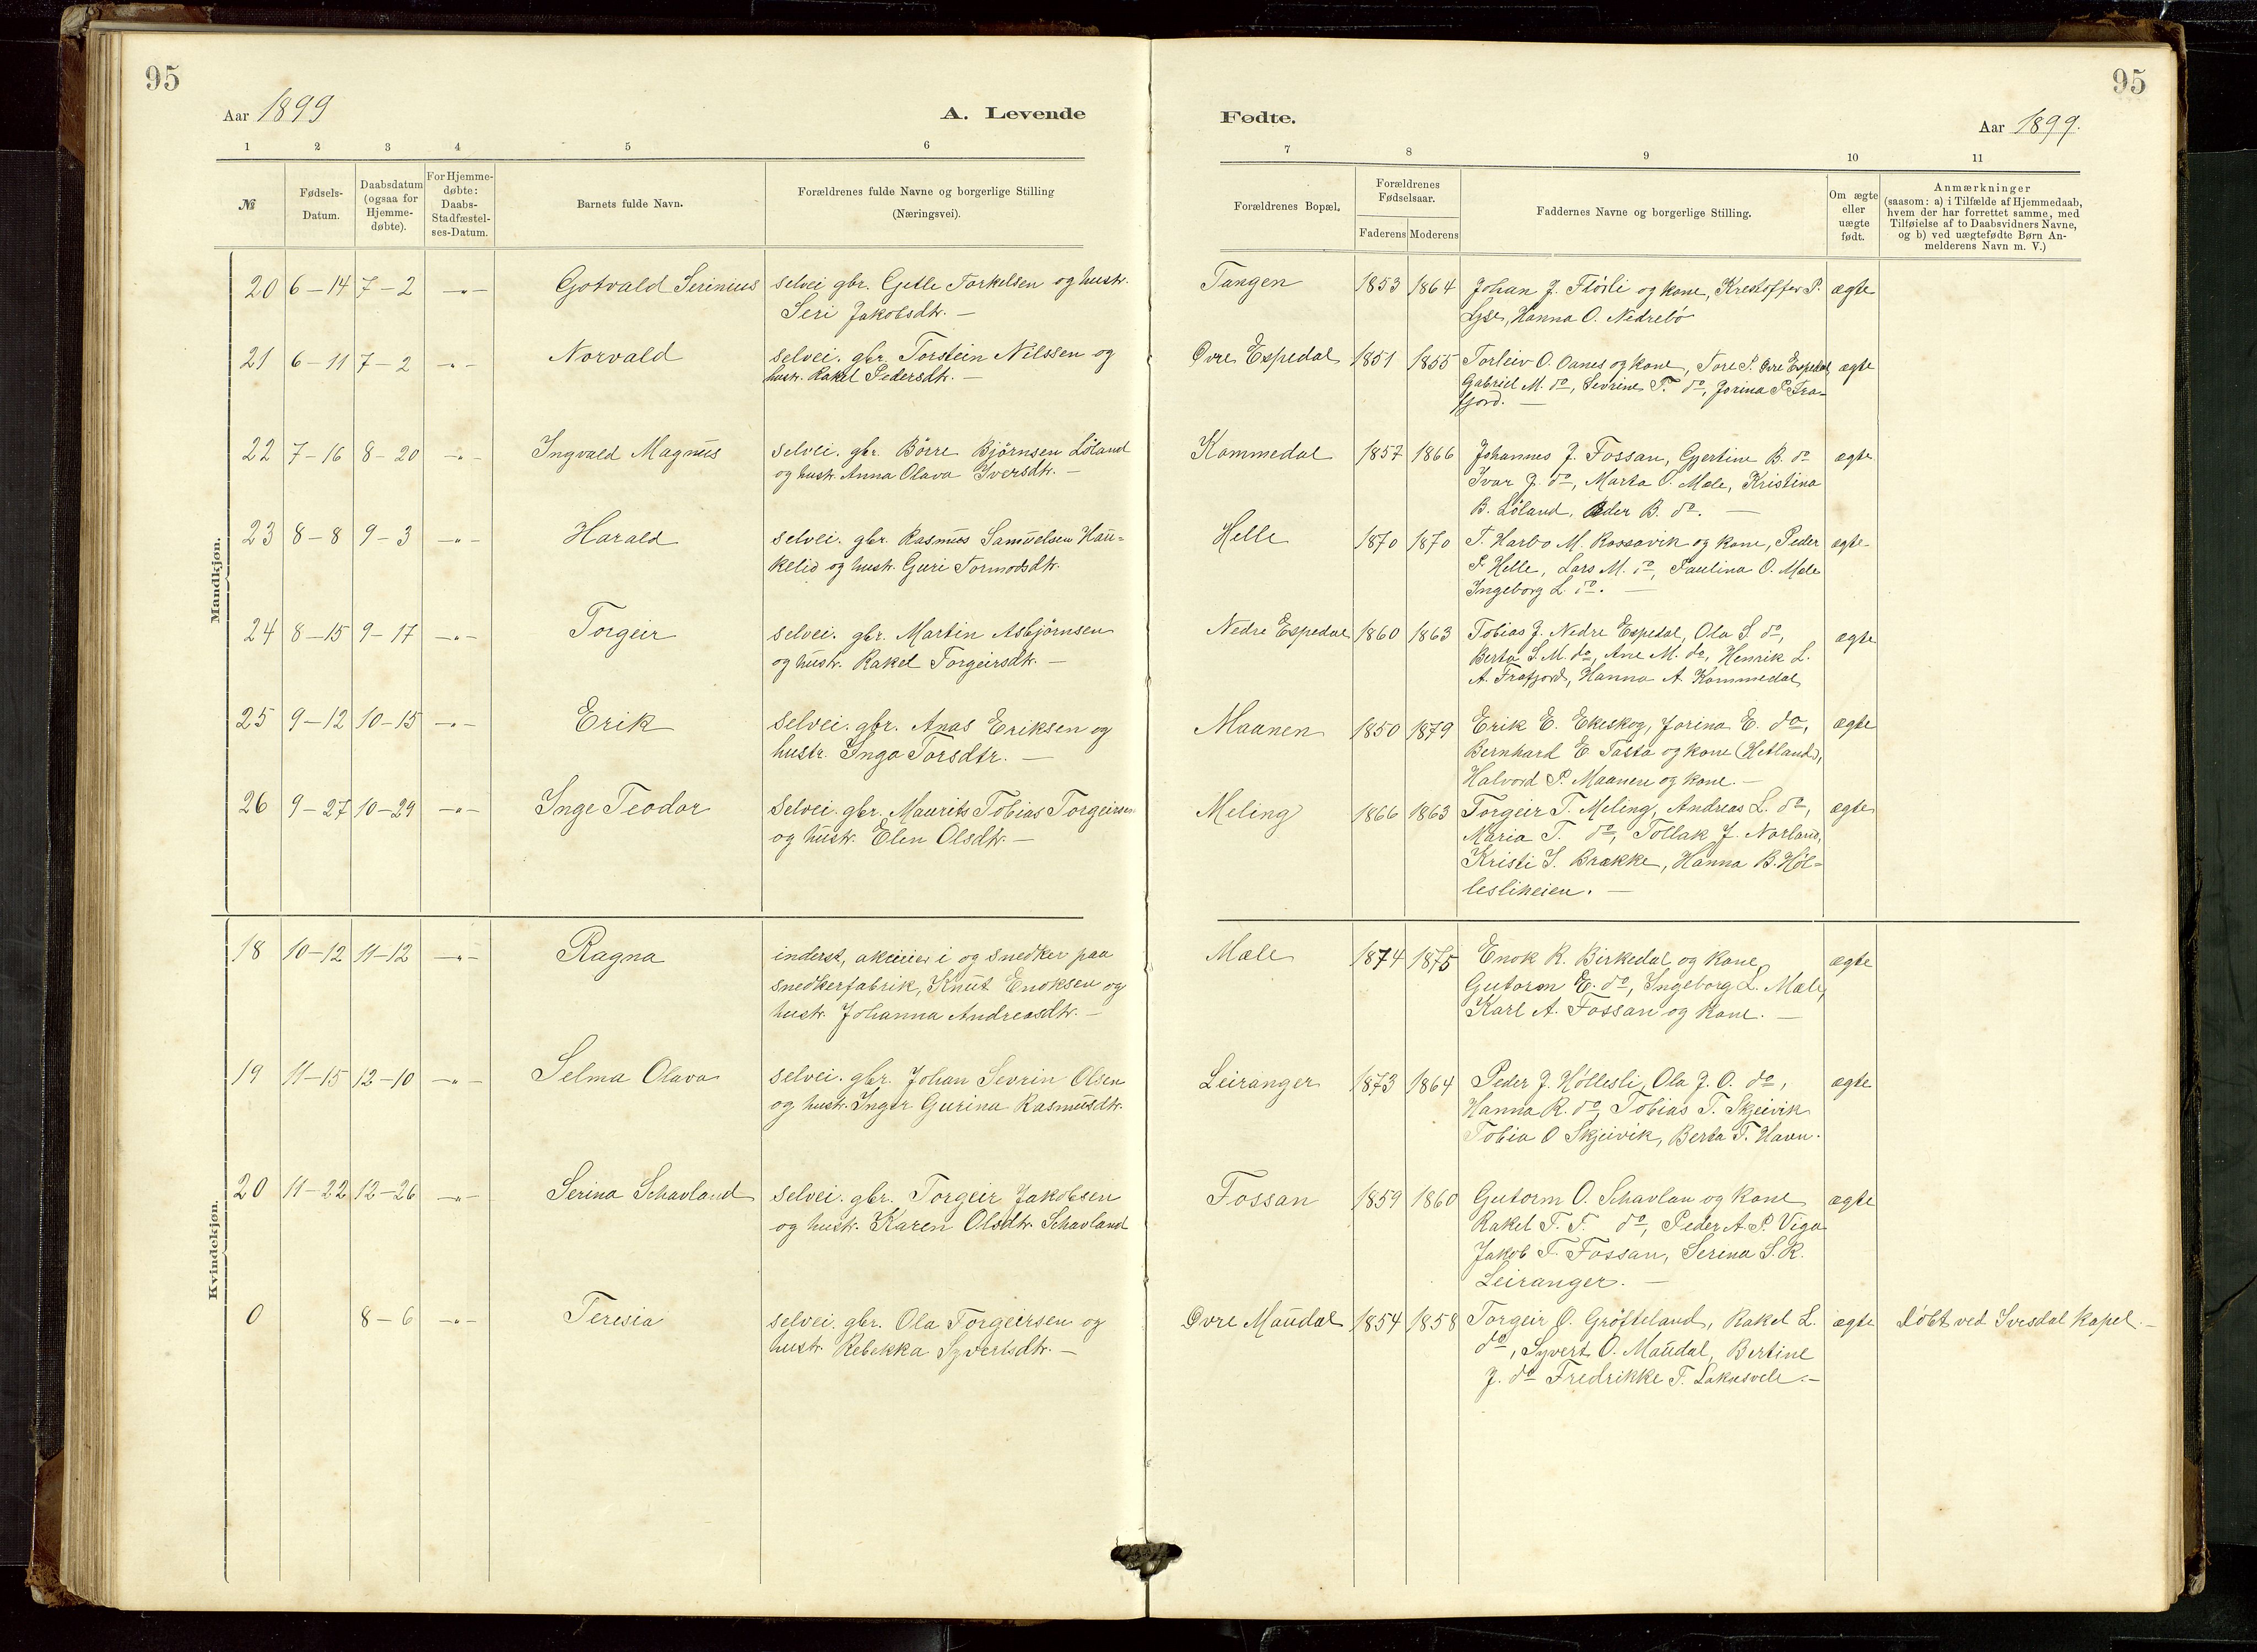 95
Aar 1899
A. Levende
1 2 3 4 5 6
№
Fødsels-Datum.
Daabsdatum (ogsaa for Hjemme-døbte).
For Hjemme-døbte: Daabs-Stadfæstel-ses-Datum.
Barnets fulde Navn.
Forældrenes fulde Navne og borgerlige Stilling
(Næringsvei).
Mandkjøn.
20 6-14 7-2 -"- Gotvald Serinius selvei gbr. Getle Torkelsen og hustr.
Seri Jakobsdtr. -
21 6-11 7-2 -"- Norvald selvei. gbr. Torstein Nilssen og
hustr. Rakel Pedersdtr. -
22 7-16 8-20 -"- Ingvald Magnus selvei. gbr. Börre Bjørnsen Löland
og hustr. Anna Olava Iversdtr. -
23 8-8 9-3 -"- Harald selvei. gbr. Rasmus Samuelsen Hau-
kelid og hustr. Guri Tormodsdtr.
24 8-15 9-17 -"- Torgeir selvei. gbr. Martin Asbjørnsen
og hustr. Rakel Torgeirsdtr. -
25 9-12 10-15 -"- Erik selvei. gbr. Anas Eriksen og
hustr. Inga Torsdtr. -
26 9-27 10-29 -"- Inge Teodor selvei. gbr. Maurits Tobias Torgeirsen
og hustr. Elen Olsdtr. -
Kvindekjøn.
18 10-12 11-12 -"- Ragna inderst, i og snedker paa
snedkerfabrik, Knut Enoksen og
hustr. Johanna Andreasdtr. -
19 11-15 12-10 -"- Selma Olava selvei. gbr. Johan Sevrin Olsen
og hustr. Inger Gurina Rasmusdtr.
20 11-22 12-26 -"- Serina Schavland selvei. gbr. Torgeir Jakobsen
og hustr. Karen Olsdtr. Schavland
0 8-6 -"- Teresia selvei. gbr. Ola Torgeirsen og
hustr. Rebekka Syvertsdtr. -
95
Fødte.
Aar 1899.
7 8 9 10 11
Forældrenes Bopæl.
Forældrenes Fødselsaar.
Faderens Moderens
Faddernes Navne og borgerlige Stilling.
Om ægte eller uægte født.
Anmærkninger
(saasom: a) i Tilfælde af Hjemmedaab,
hvem der har forrettet samme, med
Tilføielse af to Daabsvidners Navne,
og b) ved uægtefødte Børn An-
melderens Navn m. V.)
Tangen 1853 1864 Johan J. Flörli og kone, Kristoffer P. ægte
Lyse, Hanna O. Nedrebö
Øvre Espedal 1851 1855 Torleiv O. Oanes og kone, Tore P. Øvre Espedal ægte
Gabriel M. do, Sevrine T. do, Jorina P. Fra-
fjord. -
Kommedal 1857 1866 Johannes J. Fossan, Gjertine B. do ægte
Ivar J. do, Marta O. Mæle, Kristina
B. Löland, Peder B. do. -
Helle 1870 1870 T. Harbo M. Rossavik og kone, Peder ægte
P. Helle, Lars M. do, Paulina O. Mæle
Ingeborg L. do. -
Nedre Espedal 1860 1863 Tobias J. Nedre Espedal, Ola S. do, ægte
Berta S. M. do, Ane M. do, Henrik L.
A. Frafjord, Hanna A. Kommedal
Maanen 1850 1879 Erik E. Ekeskog, Jorina E. do, ægte
Bernhard E. Tasta og kone (Hetland),
Halvord P. Maanen og kone. -
Meling 1866 1863 Torgeir T. Meling, Andreas L. do, ægte
Maria T. do, Tollak J. Norland,
Kristi S. Brække, Hanna B. Høl-
lesliheien. -
Mæle 1874 1875 Enok R. Birkedal og kone, ægte
Gutorm E. do, Ingeborg L. Mæle,
Karl A. Fossan og kone. -
Leiranger 1873 1864 Peder J. Höllesli, Ola J. O. do, ægte
Hanna R. do, Tobias T. Skjeivik
Tobia O Skjeivik, Berta T. Havn.
Fossan 1859 1860 Gutorm O. Schavlan og kone ægte
Rakel T. F. do, Peder A. P. Viga
Jakob T. Fossan, Serina S. R.
Leiranger. -
Øvre Maudal 1854 1858 Torgeir O. Gröfteland, Rakel L. ægte Döbt ved Ivesdal kapel. -
do, Syvert O. Maudal, Bertine
J. do Fredrikke T. Lakesvele. -